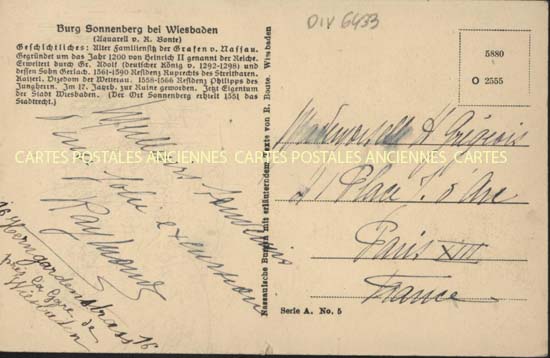 Burg Sonnenberg bei Wiesbaden
(Aquarell v. R. Bonte)
Geschichtliches: Alter Familiensitz der Grafen v. Nassau.
Gegründet um das Jahr 1200 von Heinrich II genannt der Reiche.
Erweitert durch Gr. Adolf (deutscher König v. 1292-1298) und
dessen Sohn Gerlach. 1361-1390 Residenz Ruprechts des Streitbaren,
Kaiserl. Vizedom der Wetterau. 1558-1566 Residenz Philipps des
Jungherrn. Im 17. Jahrh. zur Ruine geworden. Jetzt Eigentum
der Stadt Wiesbaden. (Der Ort Sonnenberg erhielt 1351 das
Stadtrecht.)
DIV 6433
5880
O 2555
CARTES POSTALES ANCIENNES CARTES POSTALES ANCIENNES CARTES POSTALES ANCIENNES
Meilleurs
jolie excursion
Raymonde
16
de
la gare
Wiesbaden
Nassauische Burgen mit erläuterndem Texte von R. Bonte, Wiesbaden
Mademoiselle
Place J. d'Arc
Paris XIII
France
Serie A. No. 5